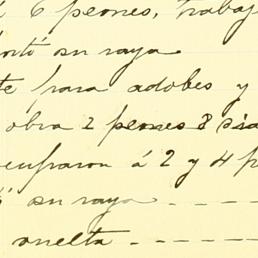 6 peones, trabaja
su raya
para adobes y
obra 2 peones 8 dia
ocuparon á 2 y 4 p
su raya
vuelta